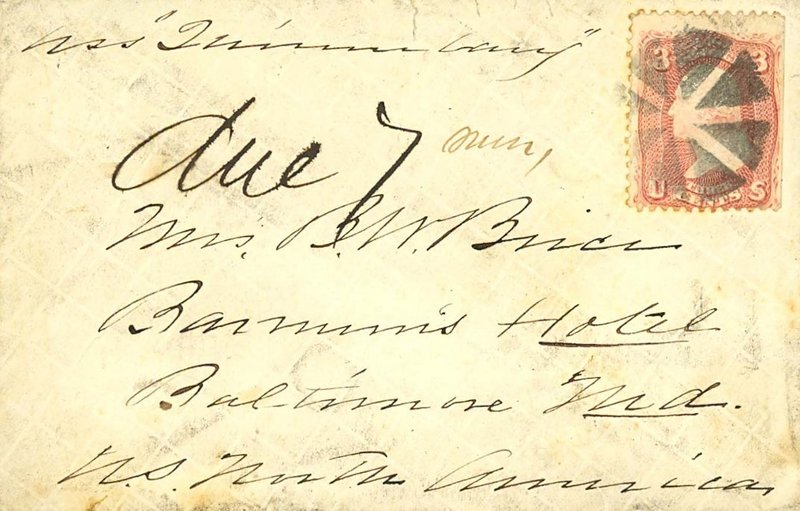 due 7
Mrs. B. W. Brice
Barnum's Hotel
Baltimore Md.
U.S. North America
3 3
U CENTS S